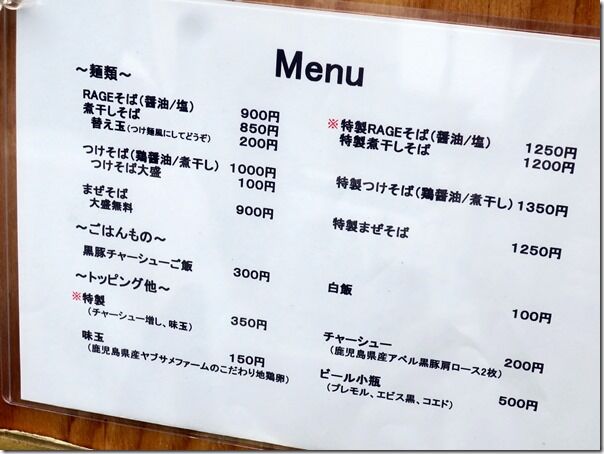 Menu
～麺類～
RAGEそば(醤油/塩) 900円
煮干しそば 850円
替え玉(つけ麺風にしてどうぞ) 200円
つけそば(鶏醤油/煮干し) 1000円
つけそば大盛 100円
まぜそば 900円
大盛無料
～ごはんもの～
黒豚チャーシューご飯 300円
～トッピング他～
※特製 350円
(チャーシュー増し、味玉)
味玉 150円
(鹿児島県産ヤブサメファームのこだわり地鶏卵)
※特製RAGEそば(醤油/塩) 1250円
特製煮干しそば 1200円
特製つけそば(鶏醤油/煮干し) 1350円
特製まぜそば 1250円
白飯 100円
チャーシュー 200円
(鹿児島県産アベル黒豚肩ロース2枚)
ビール小瓶 500円
(プレモル、エビス黒、コエド)